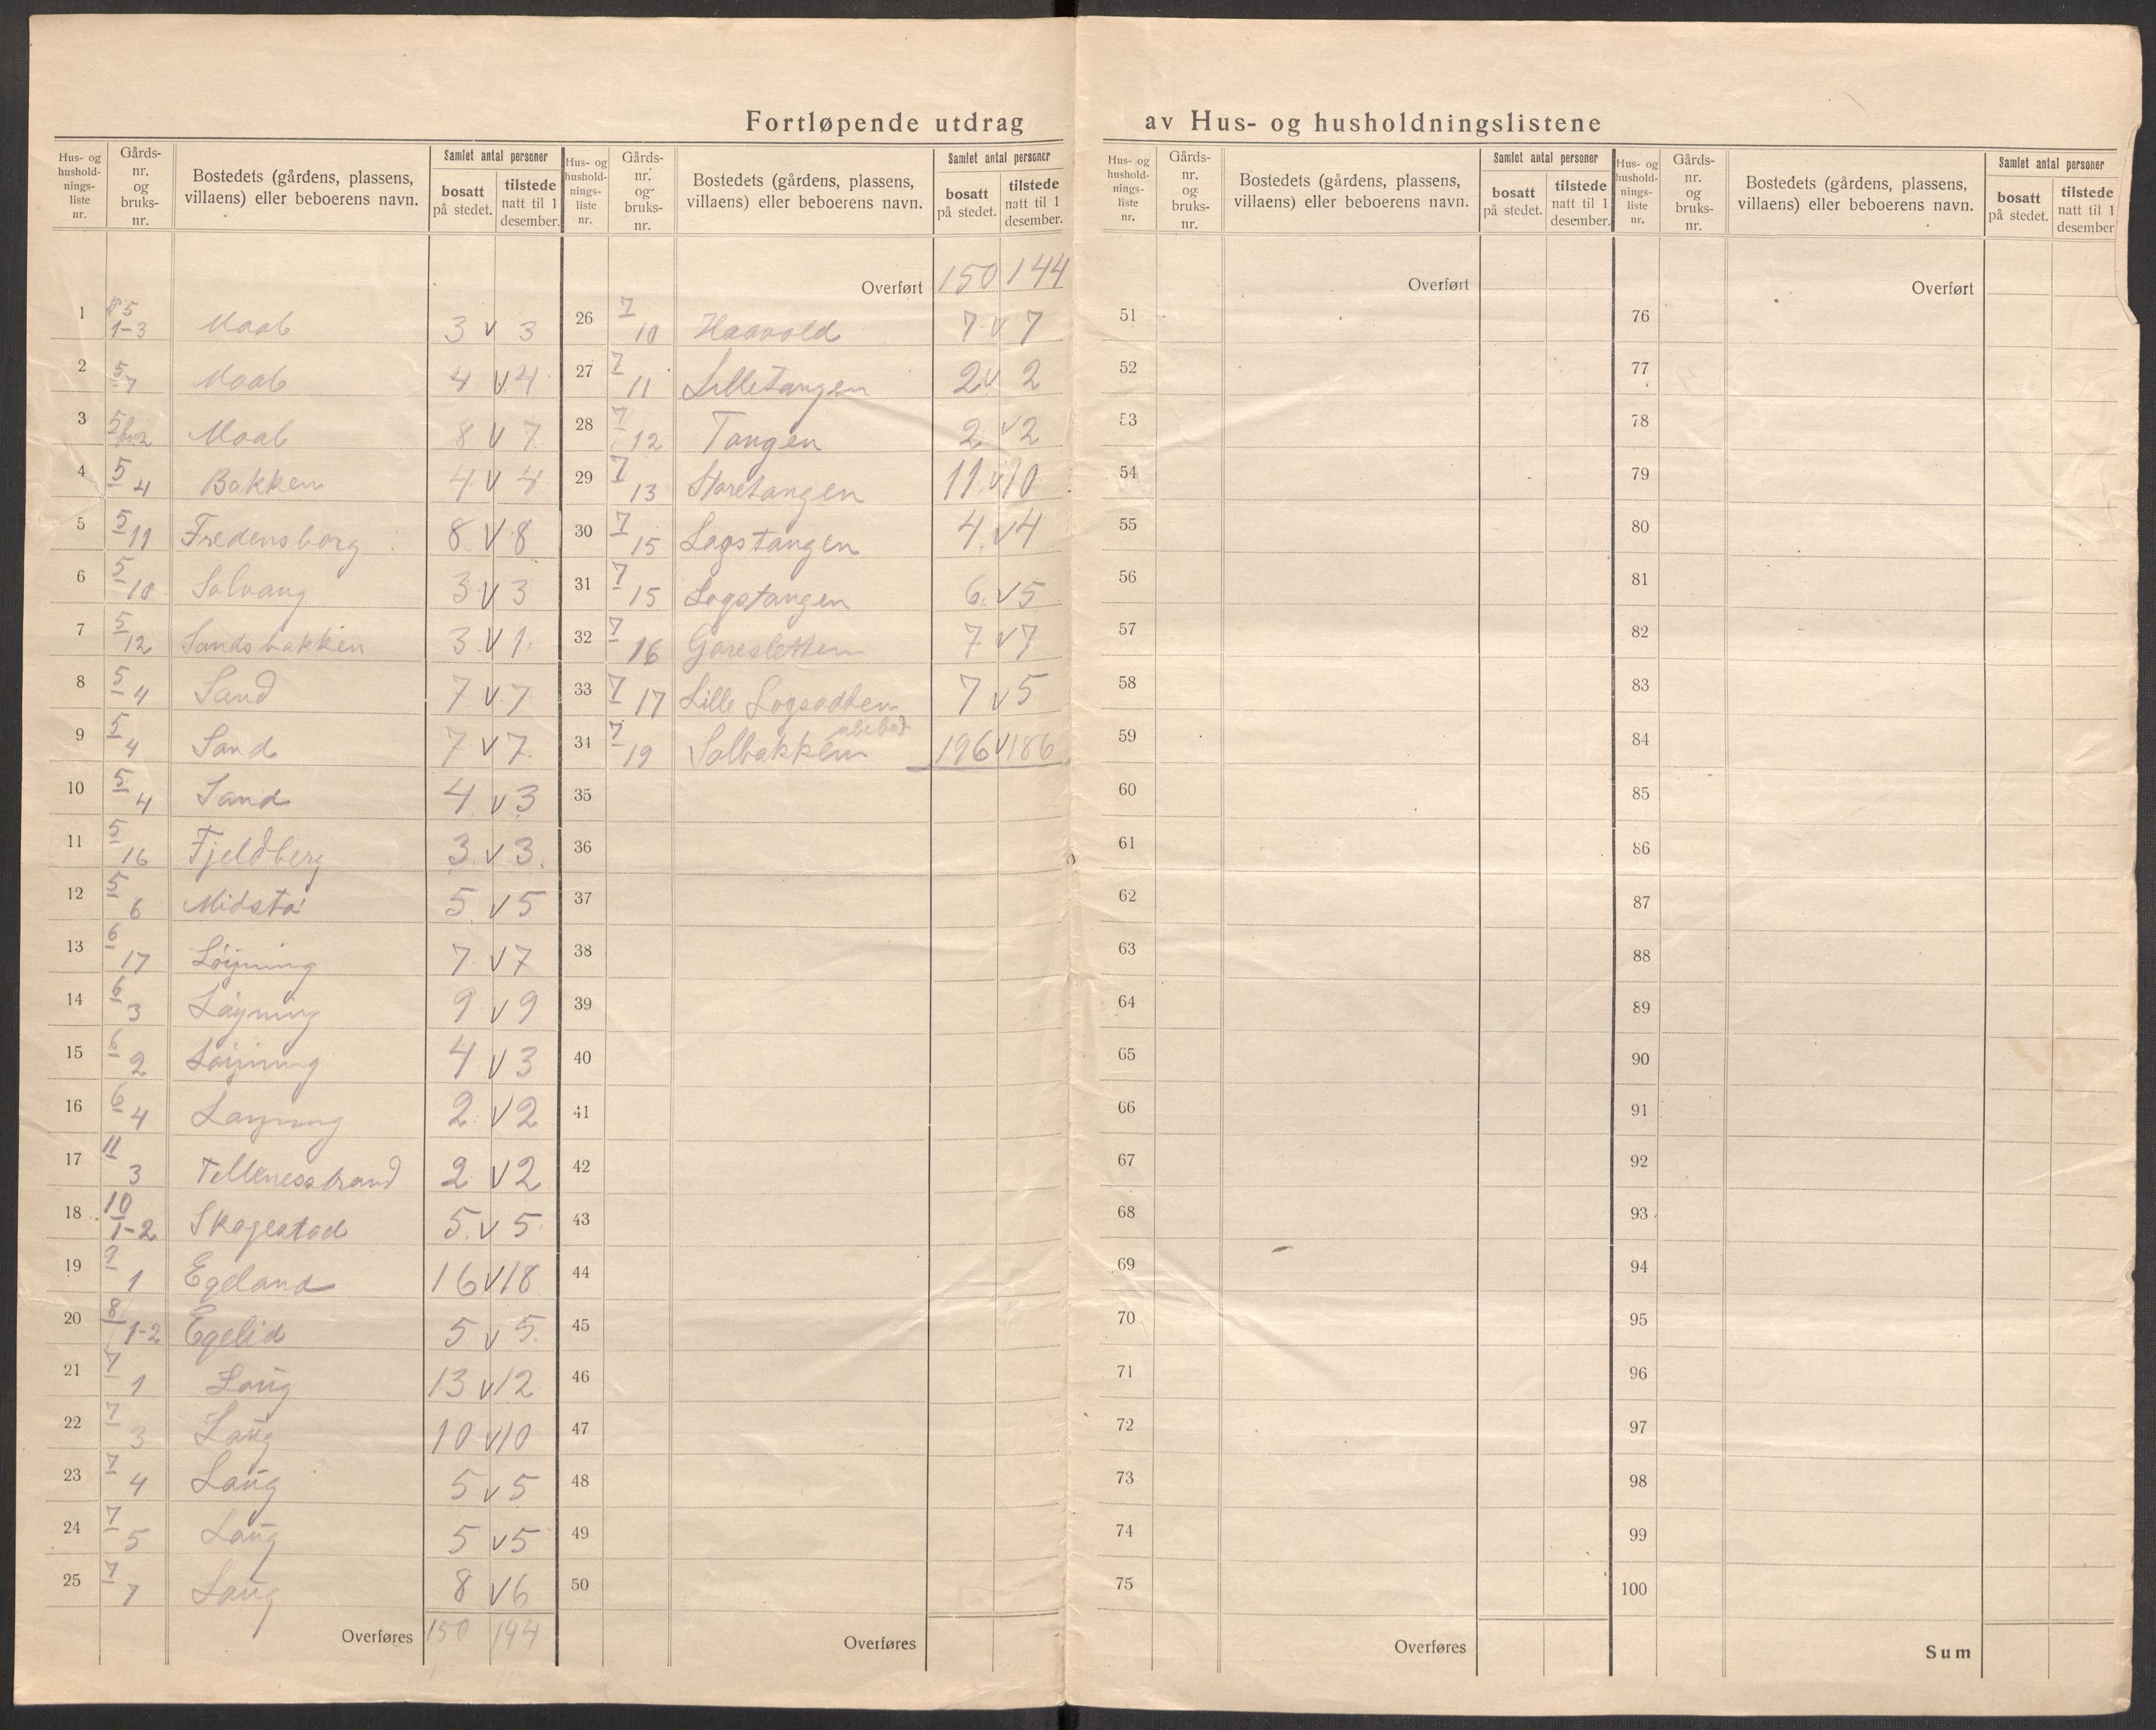 Fortløpende utdrag av Hus- og husholdningslistene
Hus- og hushold-nings-liste nr. | Gårds-nr. og bruks-nr. | Bostedets (gårdens, plassens, villaens) eller beboerens navn. | Samlet antal personer | bosatt på stedet. | tilstede natt til 1 desember.
1 5 1-3 Moab 3 v 3
2 5 7 Moab 4 v 4
3 5 Moab 8 v 7
4 5 4 Bakken 4 v 4
5 5 11 Fredensborg 8 v 8
6 5 10 Solvang 3 v 3
7 5 12 Sandsbakken 3 v 1
8 5 4 Sand 7 v 7
9 5 4 Sand 7 v 7
10 5 4 Sand 4 v 3
11 5 16 Fjeldberg 3 v 3
12 5 6 Midstø 5 v 5
13 6 17 Løyning 7 v 7
14 6 3 Løyning 9 v 9
15 6 2 Løyning 4 v 3
16 6 4 Løyning 2 v 2
17 11 3 Tellenesstrand 2 v 2
18 10 1-2 Skogestad 5 v 5
19 9 1 Egeland 16 v 18
20 8 1-2 Egelid 5 v 5
21 7 1 Laug 13 v 12
22 7 3 Laug 10 v 10
23 7 4 Laug 5 v 5
24 7 5 Laug 5 v 5
25 7 7 Laug 8 v 6
Overføres 150 144
Hus- og hushold-nings-liste nr. | Gårds-nr. og bruks-nr. | Bostedets (gårdens, plassens, villaens) eller beboerens navn. | Samlet antal personer | bosatt på stedet. | tilstede natt til 1 desember.
Overført 150 144
26 7 10 Haavold 7 v 7
27 7 11 Lilletangen 2 v 2
28 7 12 Tangen 2 v 2
29 7 13 Storetangen 11 v 10
30 7 15 Logstangen 4 v 4
31 7 15 Logstangen 6 v 5
32 7 16 Goresletten 7 v 7
33 7 17 Lille Logsodden 7 v 5
34 7 19 Solbakken ubebod 196 v 186
35
36
37
38
39
40
41
42
43
44
45
46
47
48
49
50
Overføres
Hus- og hushold-nings-liste nr. | Gårds-nr. og bruks-nr. | Bostedets (gårdens, plassens, villaens) eller beboerens navn. | Samlet antal personer | bosatt på stedet. | tilstede natt til 1 desember.
Overført
51
52
53
54
55
56
57
58
59
60
61
62
63
64
65
66
67
68
69
70
71
72
73
74
75
Overføres
Hus- og hushold-nings-liste nr. | Gårds-nr. og bruks-nr. | Bostedets (gårdens, plassens, villaens) eller beboerens navn. | Samlet antal personer | bosatt på stedet. | tilstede natt til 1 desember
Overført
76
77
78
79
80
81
82
83
84
85
86
87
88
89
90
91
92
93
94
95
96
97
98
99
100
Sum